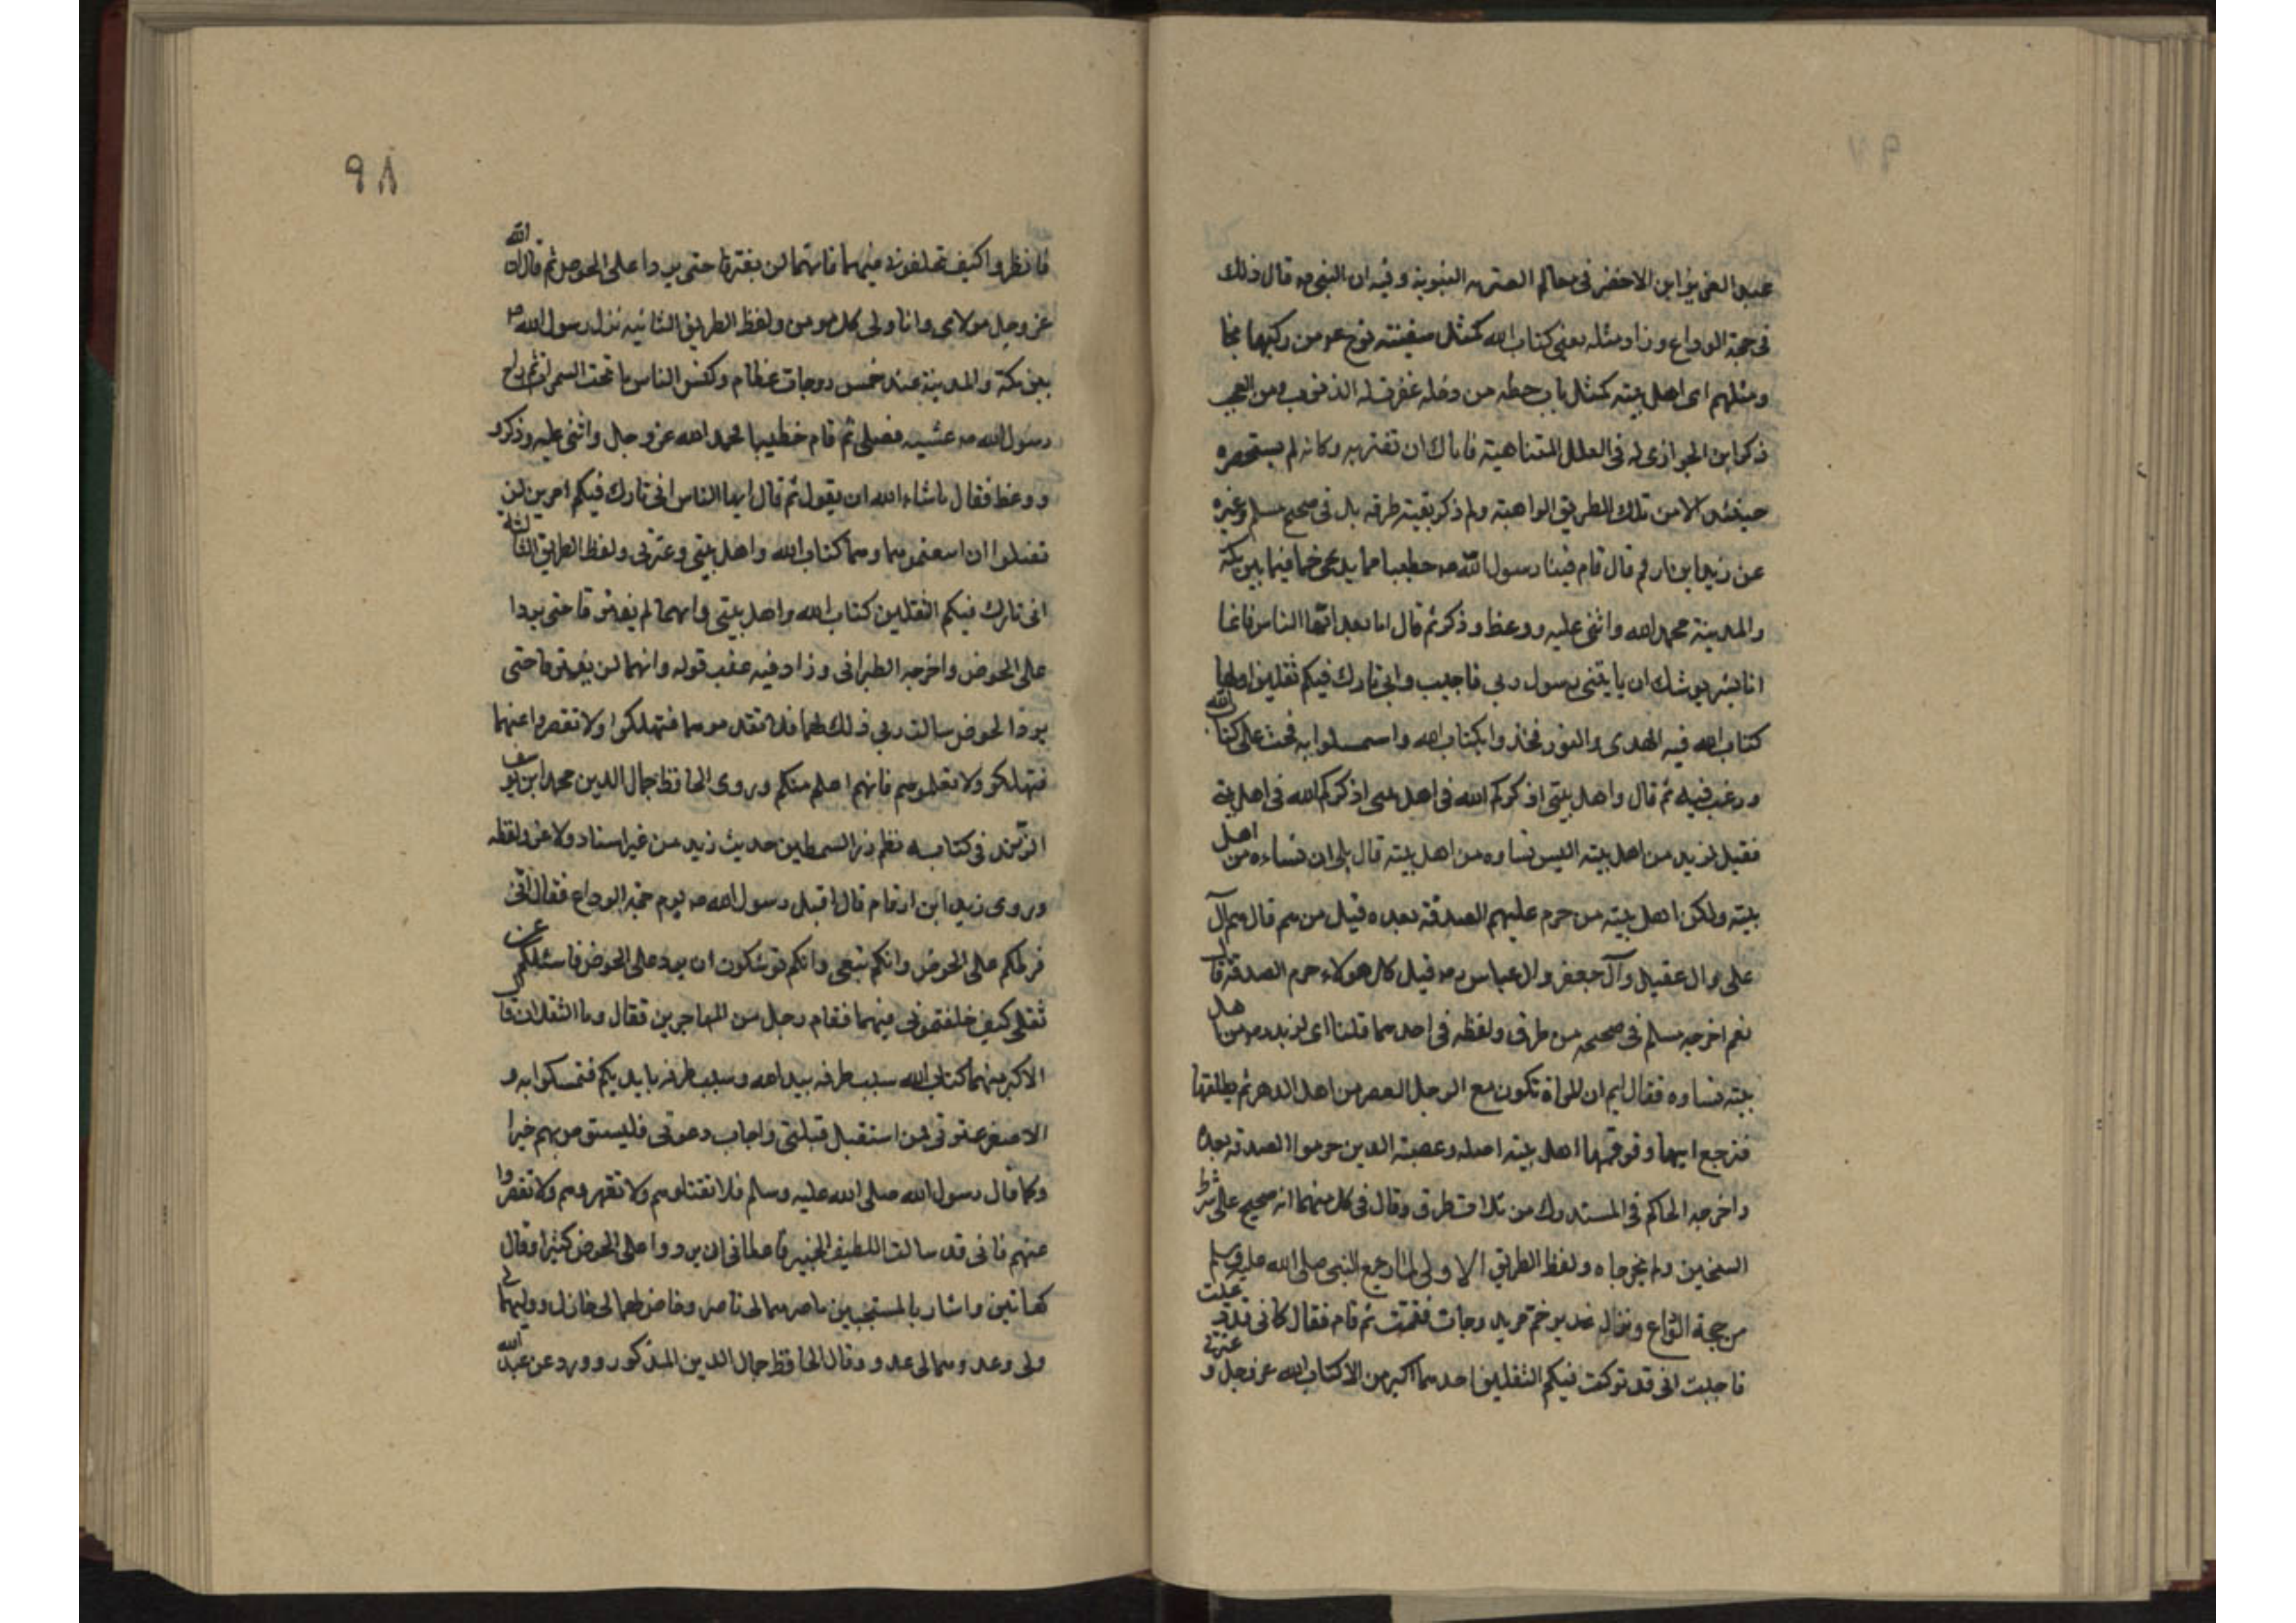 عبد العزيز ابن الاخضر فى معالم العترة النبوية وفيه ان النبى ص قال ذلك
فى حجة الوداع وزاد مثله يعنى كتاب الله كمثل سفينة نوح ع من ركبها نجا
ومثلهم اى اهل بيته كمثل باب حطه من دخله غفرت له الذنوب ومن العجب
ذكر ابن الجوازى له فى العلل المتناهية فاياك ان تغتر به وكانه لم يستحضره
حينئذ الا من تلك الطريق الواهية ولم ذكر بقية طرقه بل فى صحيح مسلم وغيره
عن زيد ابن ارقم قال قام فينا رسول الله ص خطيبا بما يدعى خما فيما بين مكة
والمدينة فحمد الله واثنى عليه ووعظ وذكر ثم قال اما بعد ايها الناس فانما
انا بشر يوشك ان ياتينى رسول ربى فاجيب وانى تارك فيكم ثقلين اولهما
كتاب الله فيه الهدى والنور فخذوا بكتاب الله واستمسكوا به فحث على كتاب الله
ورغب فيه ثم قال واهل بيتى اذكركم الله فى اهل بيتى اذكركم الله فى اهل بيته
فقيل لزيد من اهل بيته اليس نساوه من اهل بيته قال بلى ان نساءه من اهل
بيته ولكن اهل بيته من حرم عليهم الصدقة بعده قيل من هم قال هم آل
على وال عقيل وآل جعفر وال عباس رض قيل كل هولاء حرم الصدقة قال
نعم اخرجه مسلم فى صحيحه من طرق ولفظه فى احدهما قلنا اى لزيد رض من اهل
بيته نساوه فقال ايم ان المراة تكون مع الرجل العصر من اهل الدهر ثم يطلقها
فترجع ابيها وقومها اهل بيته اصله وعصبته الذين حرموا الصدقة بعده
واخرجه الحاكم فى المستدرك من ثلاث طرق وقال فى كل منهما انه صحيح على شرط
الشيخين ولم يخرجاه ولفظ الطريق الاولى لما رجع النبى صلى الله عليه وسلم
من حجة الوداع ونزل غدير خم امر بدوحات فقممت ثم قام فقال كانى قد دعيت
فاجبت انى قد تركت فيكم الثقلين احدهما اكبر من الاكتاب الله عز وجل و عترتى
٩٨
فانظروا كيف تخلفونى فيهما فانهما لن يفترقا حتى يردا على الحوض ثم قال ان الله
عز وجل مولاى وانا ولى كل مومن ولفظ الطريق الثانيه نزل رسول الله ص
بين مكة والمدينة عند خمس دوحات عظام وكنس الناس ما تحت السمرات ثم راح
رسول الله ص عشيه فصلى ثم قام خطيبا فحمد الله عز وجل واثنى عليه وذكر و
ووعظ فقال ماشاء الله ان يقول ثم قال ايها الناس انى تارك فيكم امرين لن
تضلوا ان اتبعتموهما وهما كتاب الله واهل بيتى وعترتى ولفظ الطريق الثالثة
انى تارك فيكم الثقلين كتاب الله واهل بيتى وانهما لم يفترقا حتى يردا
على الحوض واخرجه الطبرانى وزاد فيه عقب قوله وانهما لن يفترقا حتى
يردا الحوض سالت ربى ذلك لهما فلا تقدموهما فتهلكوا ولا تقصروا عنهما
فتهلكو ولا تعلموهم فانهم اعلم منكم وروى الحافظ جمال الدين محمد ابن يوسف
الزرند فى كتابه نظم درر السمطين حديث زيد من غير اسناد ولا عزو ولفظه
وروى زيد ابن ارقام قال اقبل رسول الله ص يوم حجة الوداع فقال انى
فرطكم على الحوض وانكم تبعى وانكم توشكون ان يرد على الحوض فاسئلكم عن
ثقلى كيف خلفتمونى فيهما فقام رجل من المهاجرين فقال وما الثقلان قال
الاكبر منهما كتاب الله سبب طرفه بيد الله وسبب طرفه بايديكم فتمسكوا به و
الاصغر عترتى فمن استقبل قبلتى واجاب دعوتى فليستوص بهم خيرا
وكما قال رسول الله صلى الله عليه وسلم فلا تقتلوهم ولا تقهروهم ولا تقصروا
عنهم فانى قد سالت اللطيف الخبير فاعطانى ان يردوا على الحوض كثيرا وقال
كهاتين واشار بالمستجبين ناصرهما لى ناصر وخاذلهما لى خاذل ووليهما لى
ولى وعدوهما لى عدو وقال الحافظ جمال الدين المذكور وورد عن عبد الله